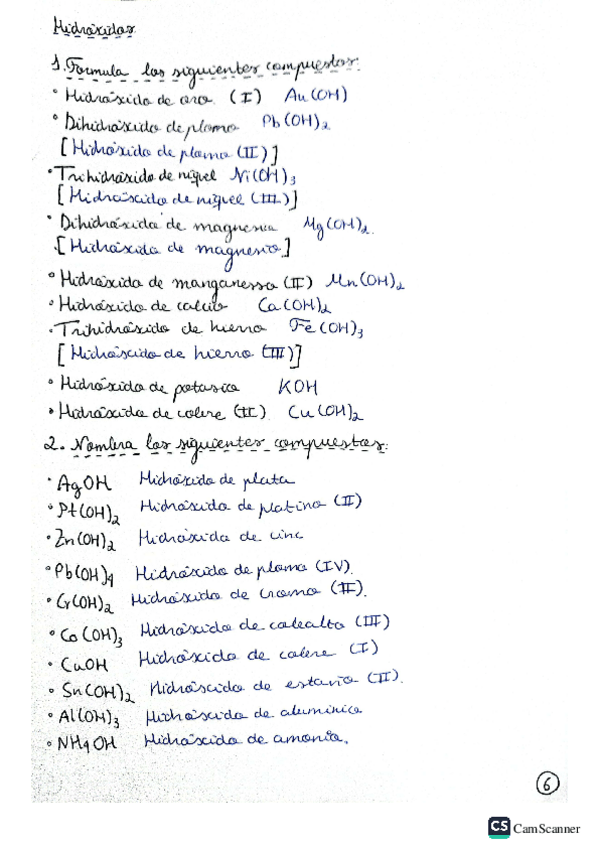 Hidróxidos
1. Formula los siguientes compuestos:
• Hidróxido de oro (I) Au(OH)
• Dihidróxido de plomo Pb(OH)2
[Hidróxido de plomo (II)]
• Trihidróxido de níquel Ni(OH)3
[Hidróxido de níquel (III)]
• Dihidróxido de magnesio Mg(OH)2
[Hidróxido de magnesio]
• Hidróxido de manganeso (II) Mn(OH)2
• Hidróxido de calcio Ca(OH)2
• Trihidróxido de hierro Fe(OH)3
[Hidróxido de hierro (III)]
• Hidróxido de potasio KOH
• Hidróxido de cobre (II) Cu(OH)2
2. Nombra los siguientes compuestos:
• AgOH Hidróxido de plata
• Pt(OH)2 Hidróxido de platino (II)
• Zn(OH)2 Hidróxido de cinc
• Pb(OH)4 Hidróxido de plomo (IV)
• Cr(OH)2 Hidróxido de cromo (II).
• Co(OH)3 Hidróxido de cobalto (III)
• CuOH Hidróxido de cobre (I)
• Sn(OH)2 Hidróxido de estaño (II).
• Al(OH)3 Hidróxido de aluminio
• NH4OH Hidróxido de amonio.
6
CS CamScanner